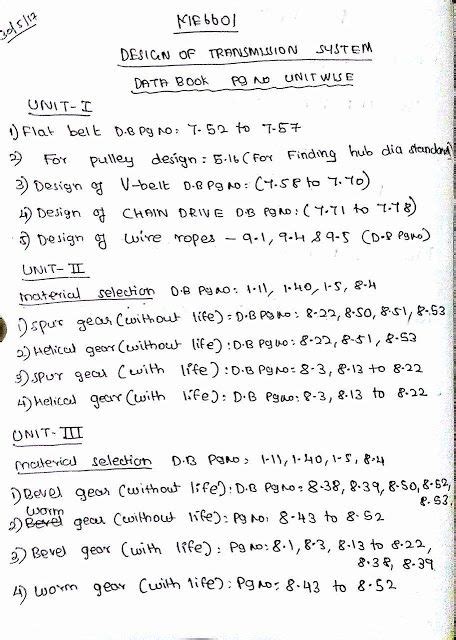 30/5/17
ME6601
DESIGN OF TRANSMISSION SYSTEM
DATA BOOK Pg NO UNITWISE
UNIT-I
1) Flat belt D.B Pg no: 7.52 to 7.57
2) For pulley design: 5.16 (For Finding hub dia standard)
3) Design of V-belt D.B Pg no: (7.58 to 7.70)
4) Design of CHAIN DRIVE D.B Pg no: (7.71 to 7.78)
5) Design of wire ropes - 9.1, 9.4 & 9.5 (D.B Pg no)
UNIT-II
material selection D.B Pg no: 1.11, 1.40, 1.5, 8.4
1) spur gear (without life): D.B Pg no: 8.22, 8.50, 8.51, 8.53
2) Helical gear (without life): D.B Pg no: 8.22, 8.51, 8.53
3) spur gear (with life): D.B Pg no: 8.3, 8.13 to 8.22
4) Helical gear (with life): D.B Pg no: 8.3, 8.13 to 8.22
UNIT-III
material selection D.B Pg no: 1.11, 1.40, 1.5, 8.4
1) Bevel gear (without life): D.B Pg no: 8.38, 8.39, 8.50, 8.52,
8.53
worm
2) Bevel gear (without life): Pg no: 8.43 to 8.52
3) Bevel gear (with life): Pg no: 8.1, 8.3, 8.13 to 8.22,
8.38, 8.39
4) worm gear (with life): Pg no: 8.43 to 8.52